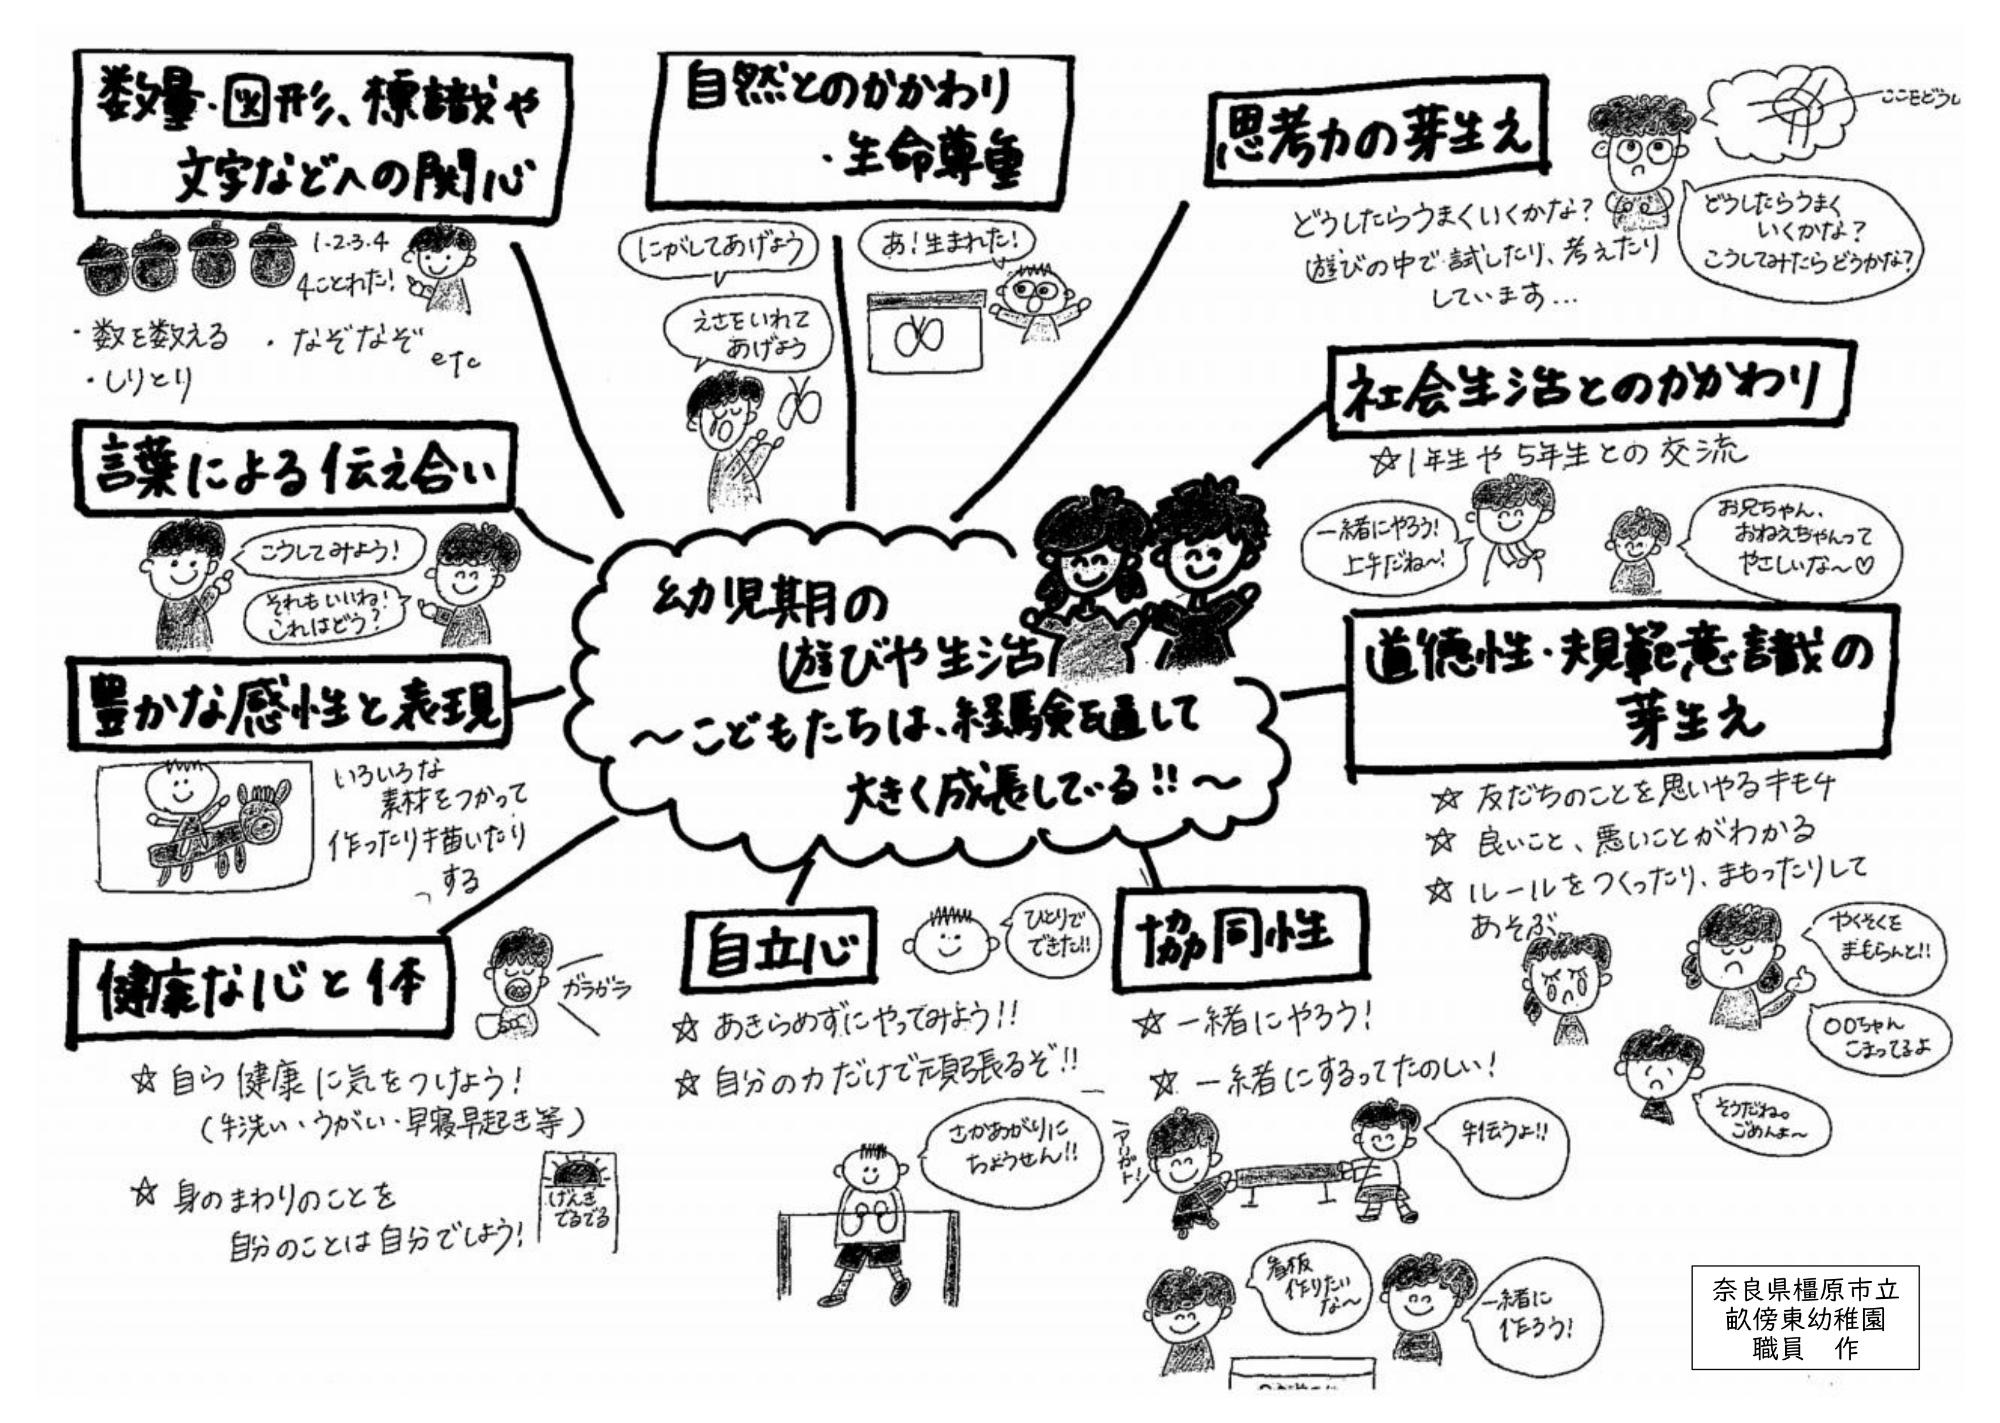 数量・図形、標識や
文字などへの関心
1・2・3・4
4ことれた!
・数を数える
・なぞなぞ
・しりとり
etc
自然とのかかわり
・生命尊重
にがしてあげよう
あ!生まれた!
えさをいれて
あげよう
思考力の芽生え
ここをどうし
どうしたらうまく
いくかな?
こうしてみたらどうかな?
どうしたらうまくいくかな?
遊びの中で試したり、考えたり
しています…
社会生活とのかかわり
☆1年生や5年生との交流
一緒にやろう!
上手だね〜!
お兄ちゃん、
おねえちゃんって
やさしいな〜♡
言葉による伝え合い
こうしてみよう!
それもいいね!
これはどう?
幼児期の
遊びや生活
〜こどもたちは、経験を通して
大きく成長している!!〜
道徳性・規範意識の
芽生え
☆友だちのことを思いやるキモチ
☆良いこと、悪いことがわかる
☆ルールをつくったり、まもったりして
あそぶ
やくそくを
まもらんと!!
〇〇ちゃん
こまってるよ
そうだね。
ごめんよ〜
豊かな感性と表現
いろいろな
素材をつかって
作ったり描いたり
する
健康な心と体
ガラガラ
☆自ら健康に気をつけよう!
(手洗い・うがい・早寝早起き等)
☆身のまわりのことを
自分のことは自分でしよう!
げんき
でるでる
自立心
ひとりで
できた!!
☆あきらめずにやってみよう!!
☆自分の力だけで頑張るぞ!!
さかあがりに
ちょうせん!!
協同性
☆一緒にやろう!
☆一緒にするってたのしい!
アリガト!
手伝うよ!!
看板
作りたい
な〜
一緒に
作ろう!
奈良県橿原市立
畝傍東幼稚園
職員　作